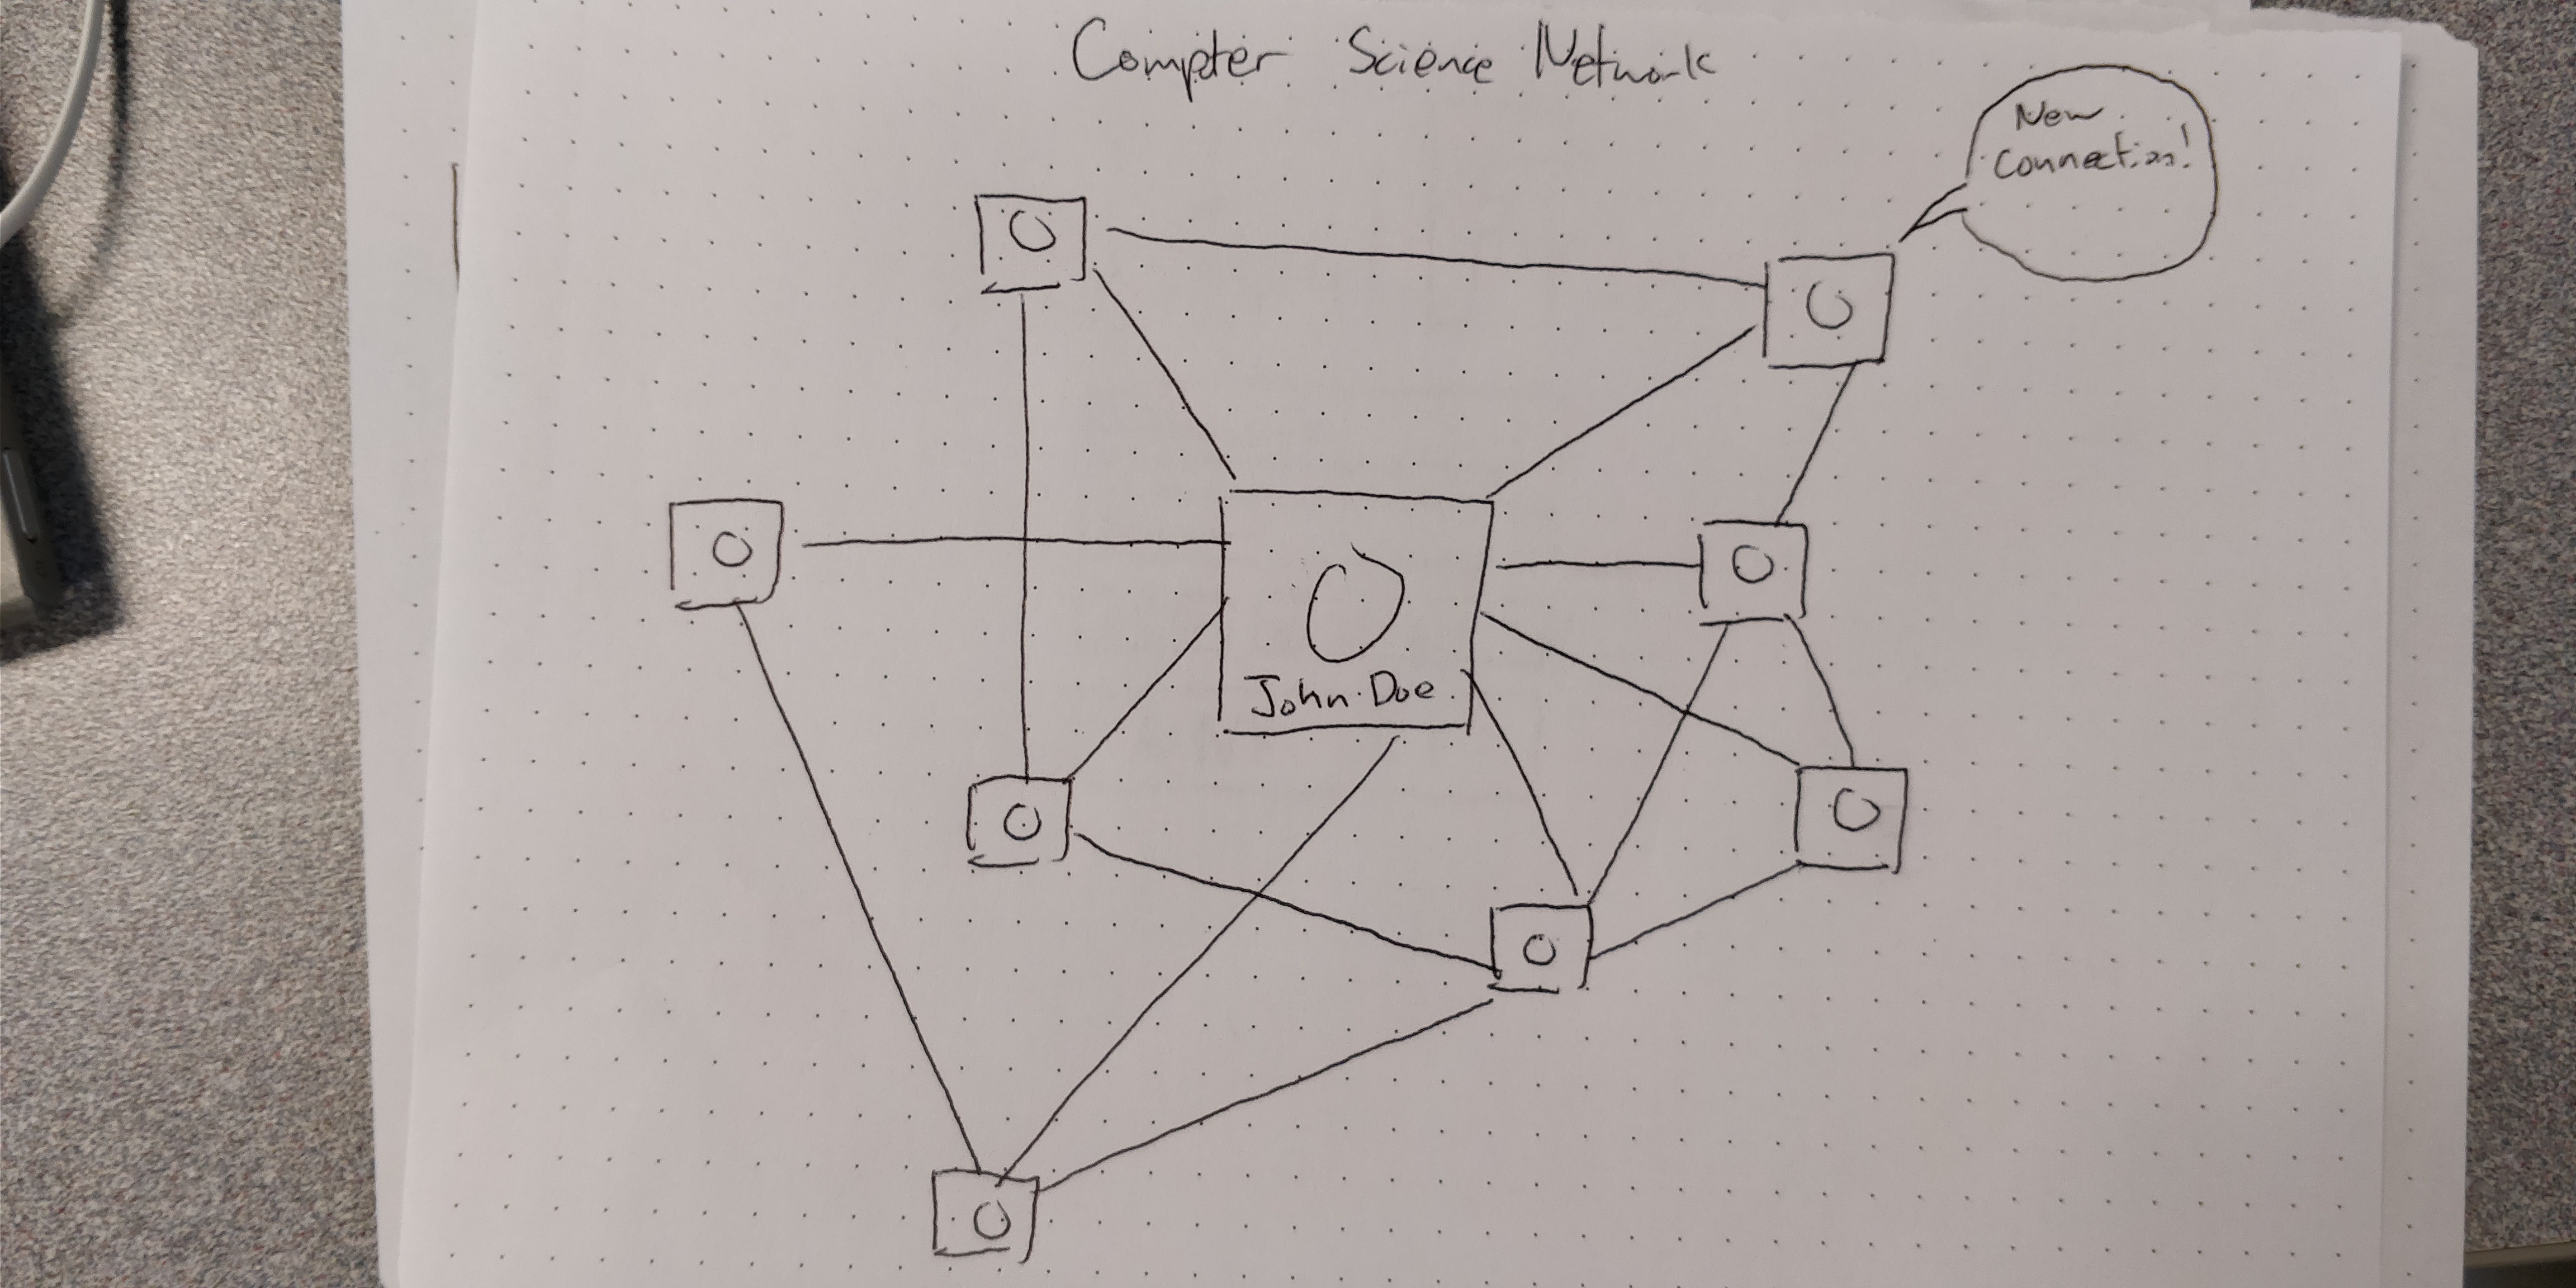 Compter Science Network
New
Connection!
John Doe